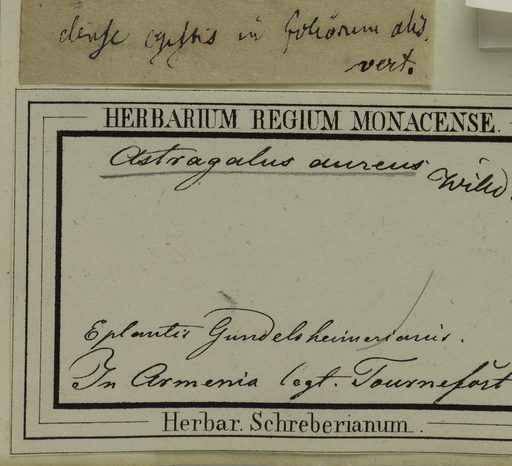 in foliorum
vert.
HERBARIUM REGIUM MONACENSE.
Astragalus aureus Willd.
E plantis Gundelsheimerianis.
In Armenia legt. Tournefort
Herbar. Schreberianum.